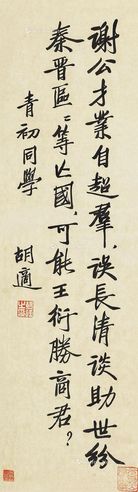 謝公才業自超羣,誤長清談助世紛
秦晉區區等亡國,可能王衍勝商君?
青初同學
胡適